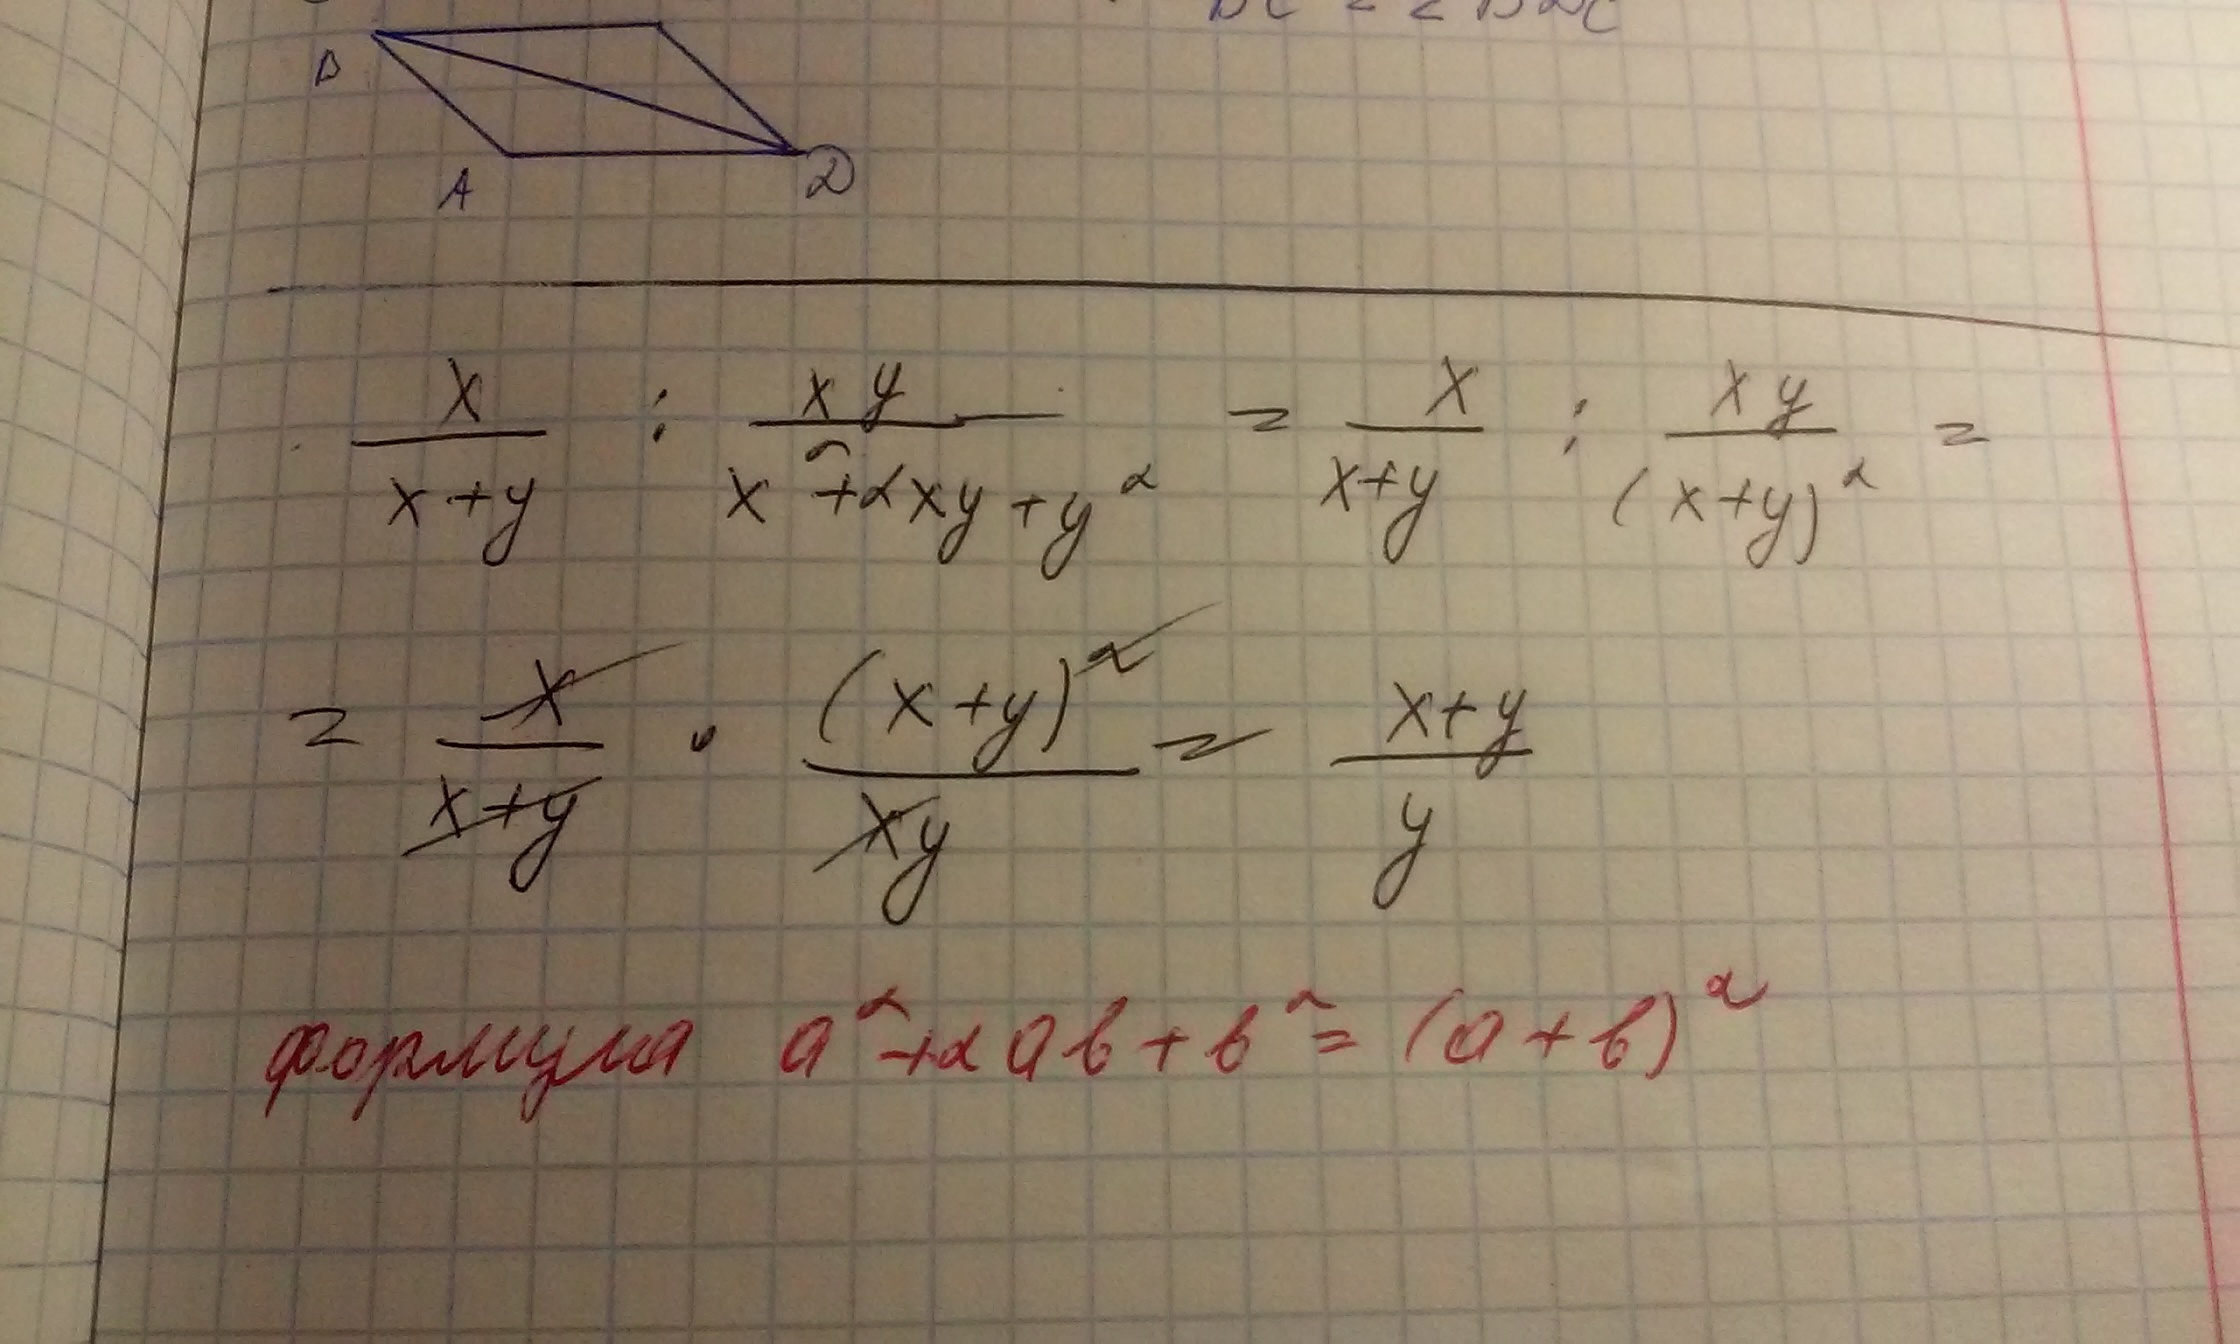 B
A D
x/(x+y) : xy/(x²+2xy+y²) = x/(x+y) : xy/(x+y)² =
= x/(x+y) · (x+y)²/(xy) = (x+y)/y
формула a²+2ab+b²=(a+b)²